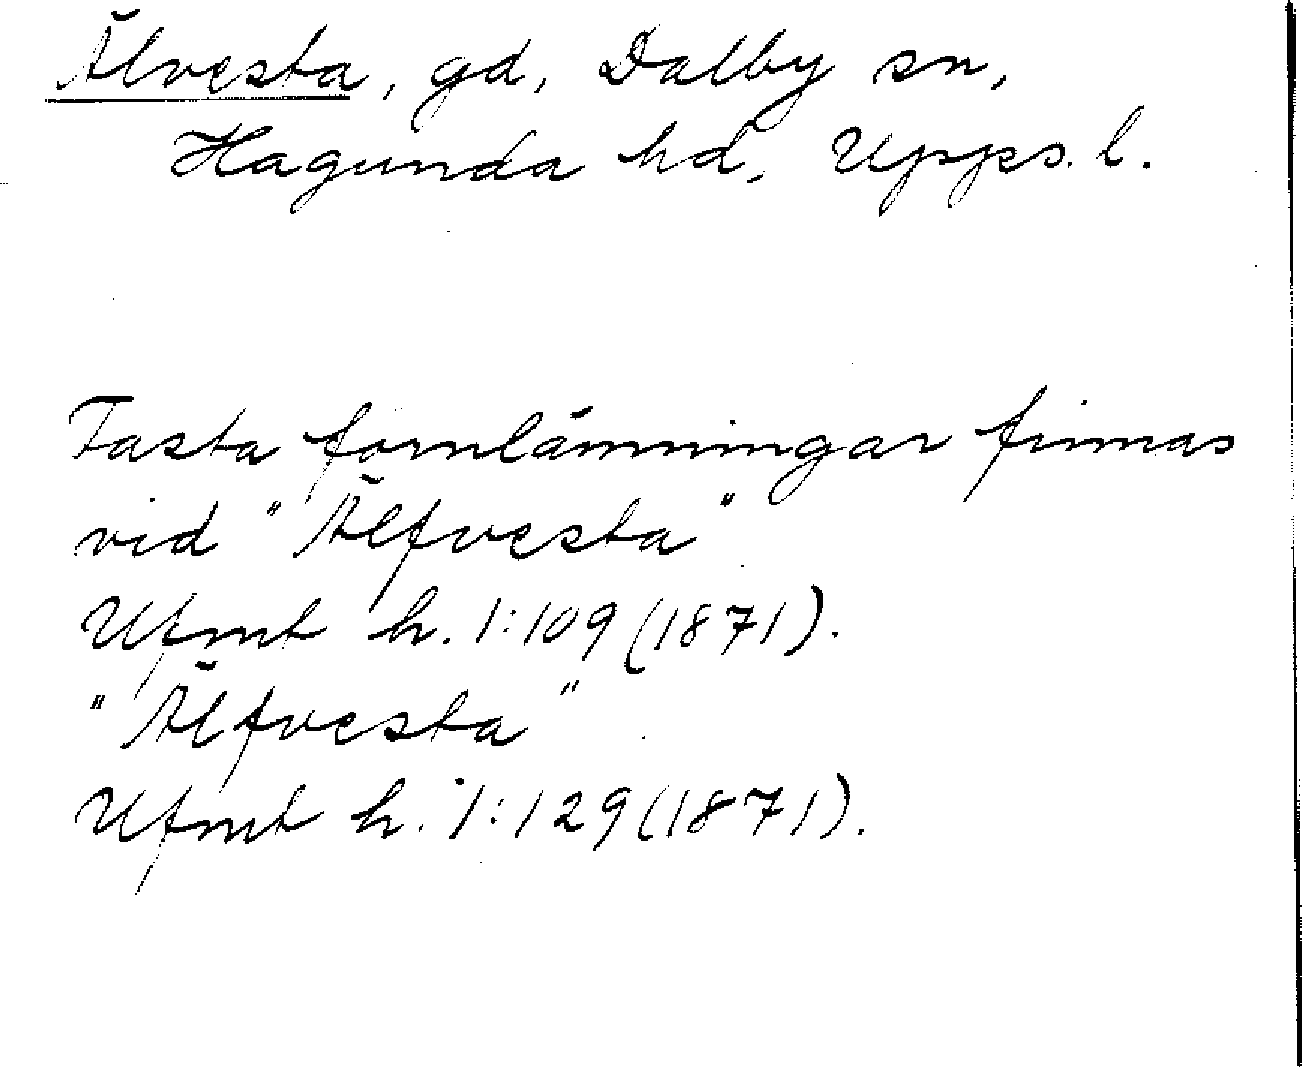 Älvesta, gd, Dalby sn,
Hagunda hd, Upps. l.
Fasta fornlämningar finnas
vid "Älfvesta"
Ufmt h. 1:109 (1871).
"Älfvesta"
Ufmt h. 1:129 (1871).